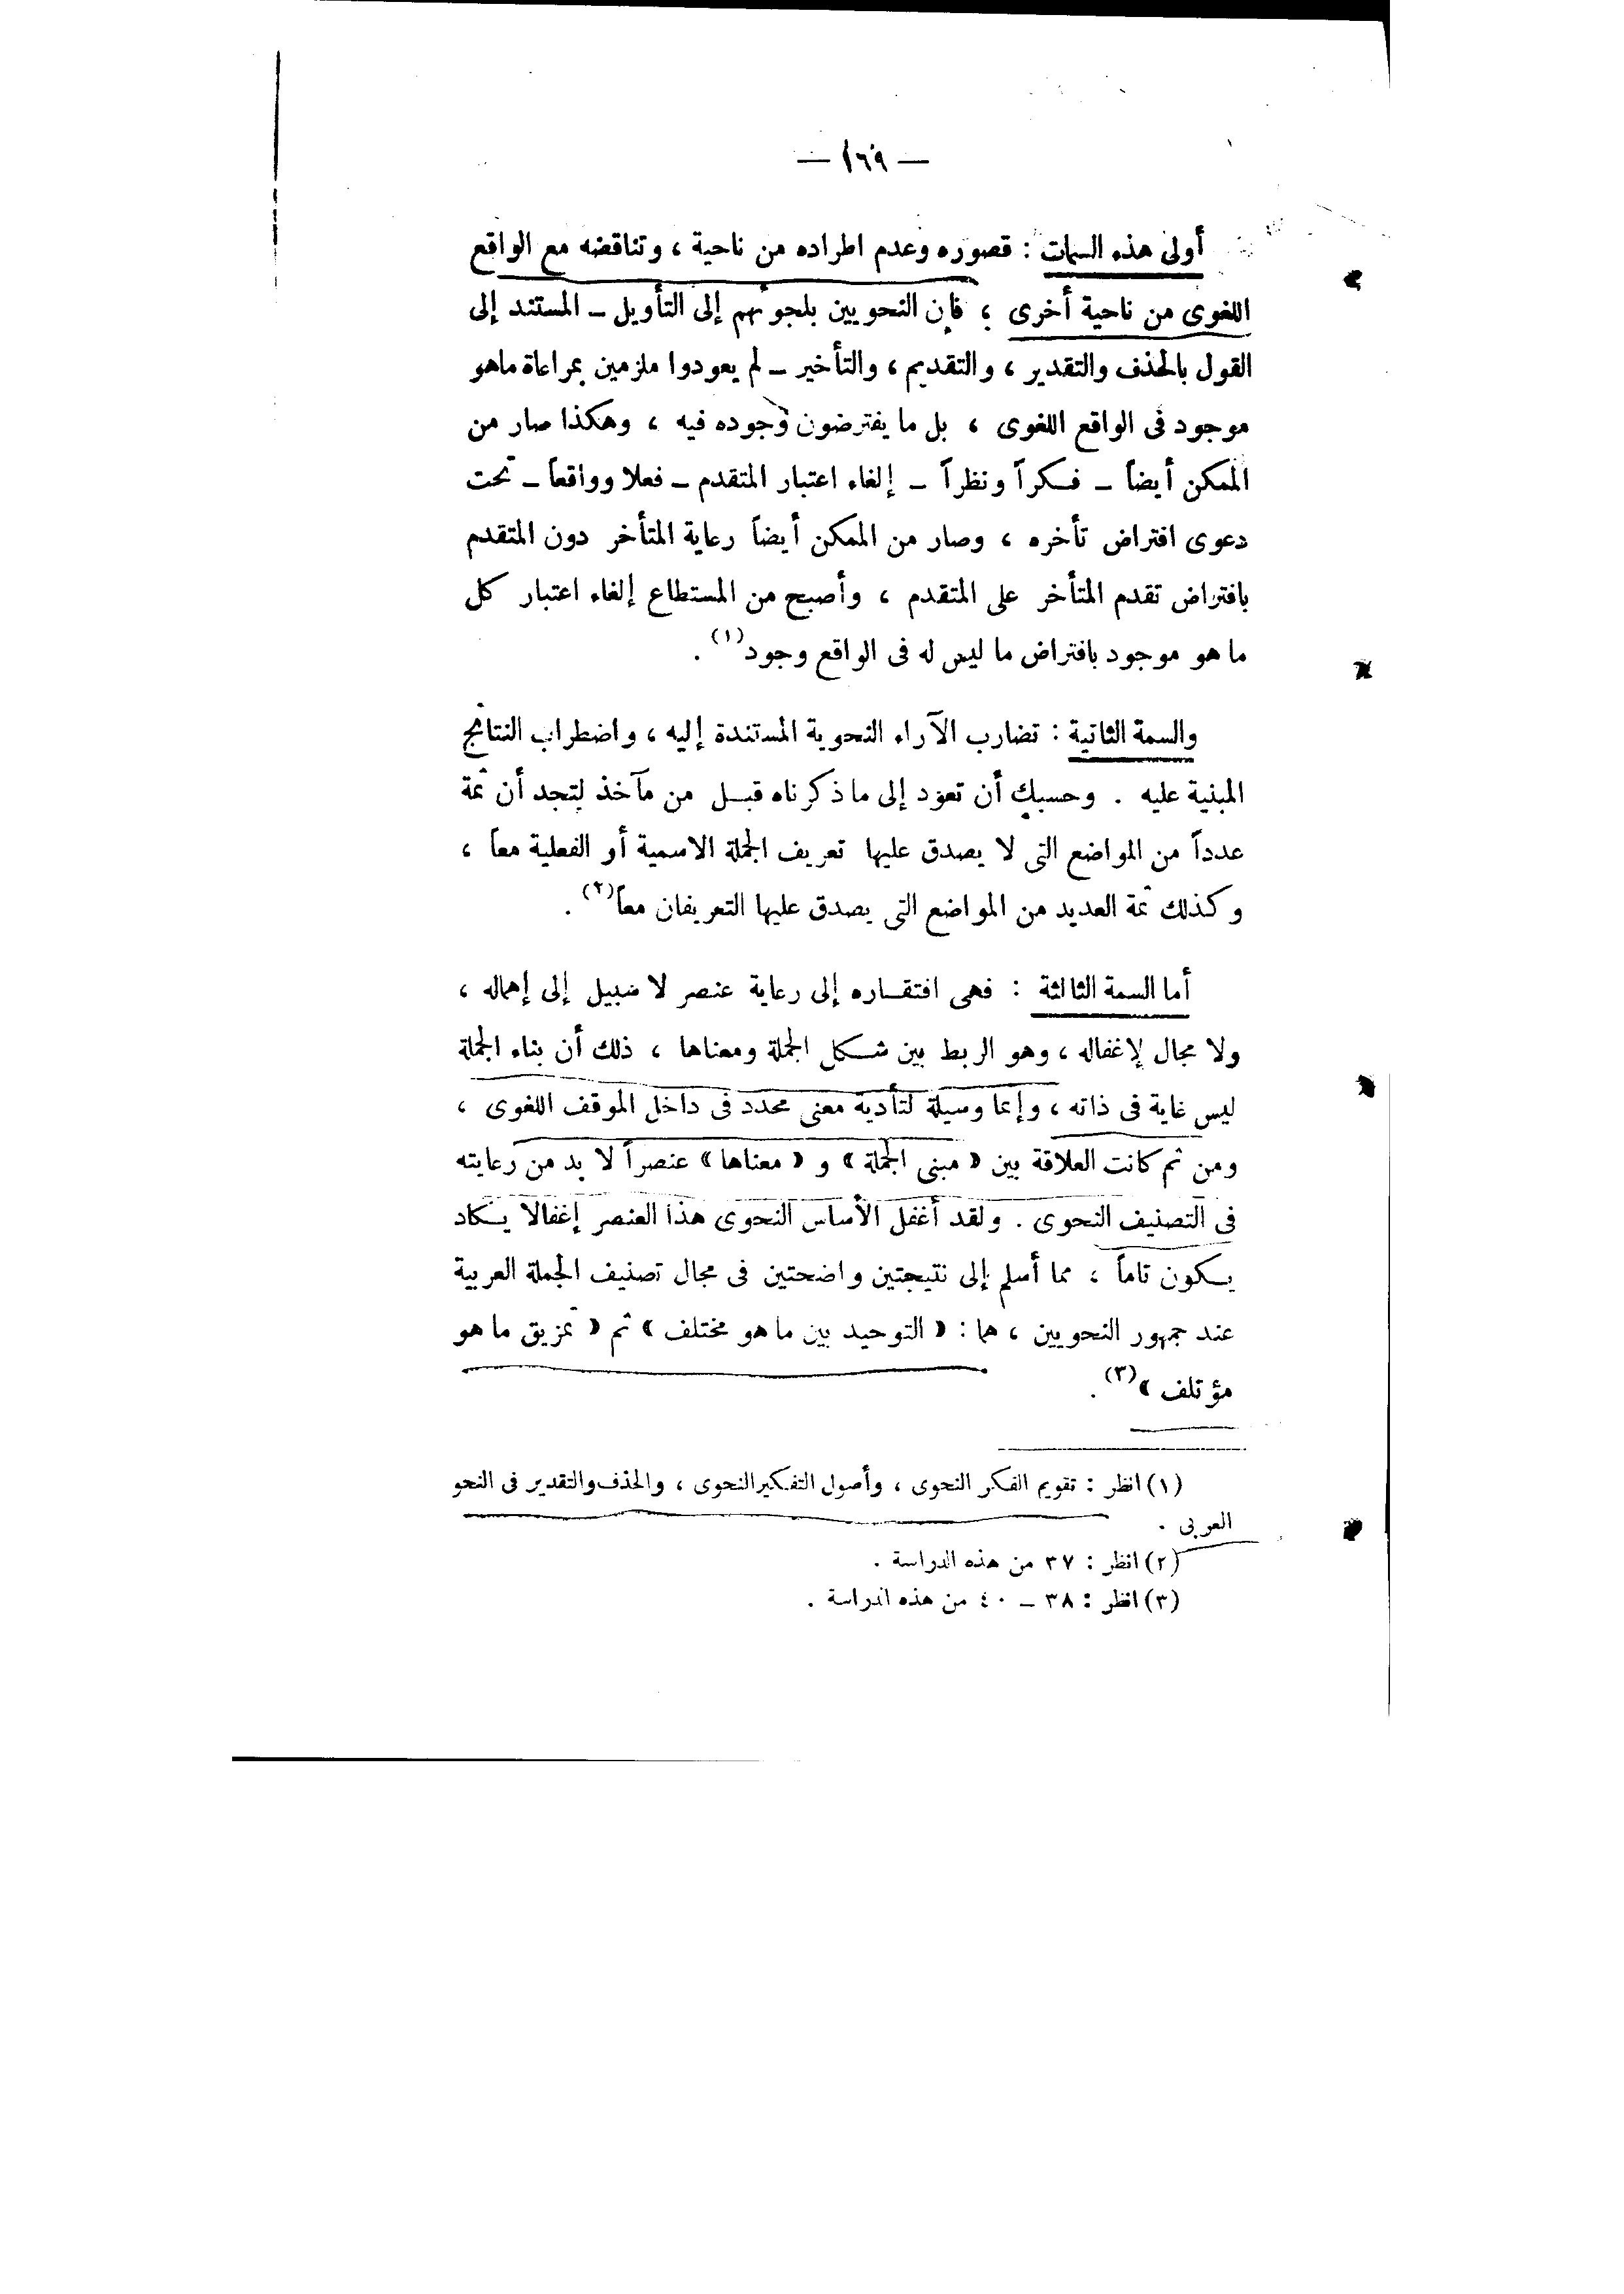 — ١٦٩ —
أولى هذه السمات : قصوره وعدم اطراده من ناحية ، وتناقضه مع الواقع
اللغوى من ناحية أخرى ؛ فإن النحويين بلجوئهم إلى التأويل – المستند إلى
القول بالحذف والتقدير ، والتقديم ، والتأخير – لم يعودوا ملزمين بمراعاة ماهو
موجود فى الواقع اللغوى ، بل ما يفترضون وجوده فيه ، وهكذا صار من
الممكن أيضاً – فكراً ونظراً – إلغاء اعتبار المتقدم – فعلا وواقعاً – تحت
دعوى افتراض تأخره ، وصار من الممكن أيضاً رعاية المتأخر دون المتقدم
بافتراض تقدم المتأخر على المتقدم ، وأصبح من المستطاع إلغاء اعتبار كل
ما هو موجود بافتراض ما ليس له فى الواقع وجود (١) .
والسمة الثانية : تضارب الآراء النحوية المستندة إليه ، واضطراب النتائج
المبنية عليه . وحسبك أن تعود إلى ما ذكرناه قبل من مآخذ لتجد أن ثمة
عدداً من المواضع التى لا يصدق عليها تعريف الجملة الاسمية أو الفعلية معاً ،
وكذلك ثمة العديد من المواضع التى يصدق عليها التعريفان معاً (٢) .
أما السمة الثالثة : فهى افتقاره إلى رعاية عنصر لا سبيل إلى إهماله ،
ولا مجال لإغفاله ، وهو الربط بين شكل الجملة ومعناها ، ذلك أن بناء الجملة
ليس غاية فى ذاته ، وإنما وسيلة لتأدية معنى محدد فى داخل الموقف اللغوى ،
ومن ثم كانت العلاقة بين « مبنى الجملة » و « معناها » عنصراً لا بد من رعايته
فى التصنيف النحوى . ولقد أغفل الأساس النحوى هذا العنصر إغفالا يكاد
يكون تاماً ، مما أسلم إلى نتيجتين واضحتين فى مجال تصنيف الجملة العربية
عند جمهور النحويين ، هما : « التوحيد بين ما هو مختلف » ثم « تمزيق ما هو
مؤتلف » (٣) .
(١) انظر : تقويم الفكر النحوى ، وأصول التفكير النحوى ، والحذف والتقدير فى النحو
العربى .
(٢) انظر : ٣٧ من هذه الدراسة .
(٣) انظر : ٣٨ – ٤٠ من هذه الدراسة .